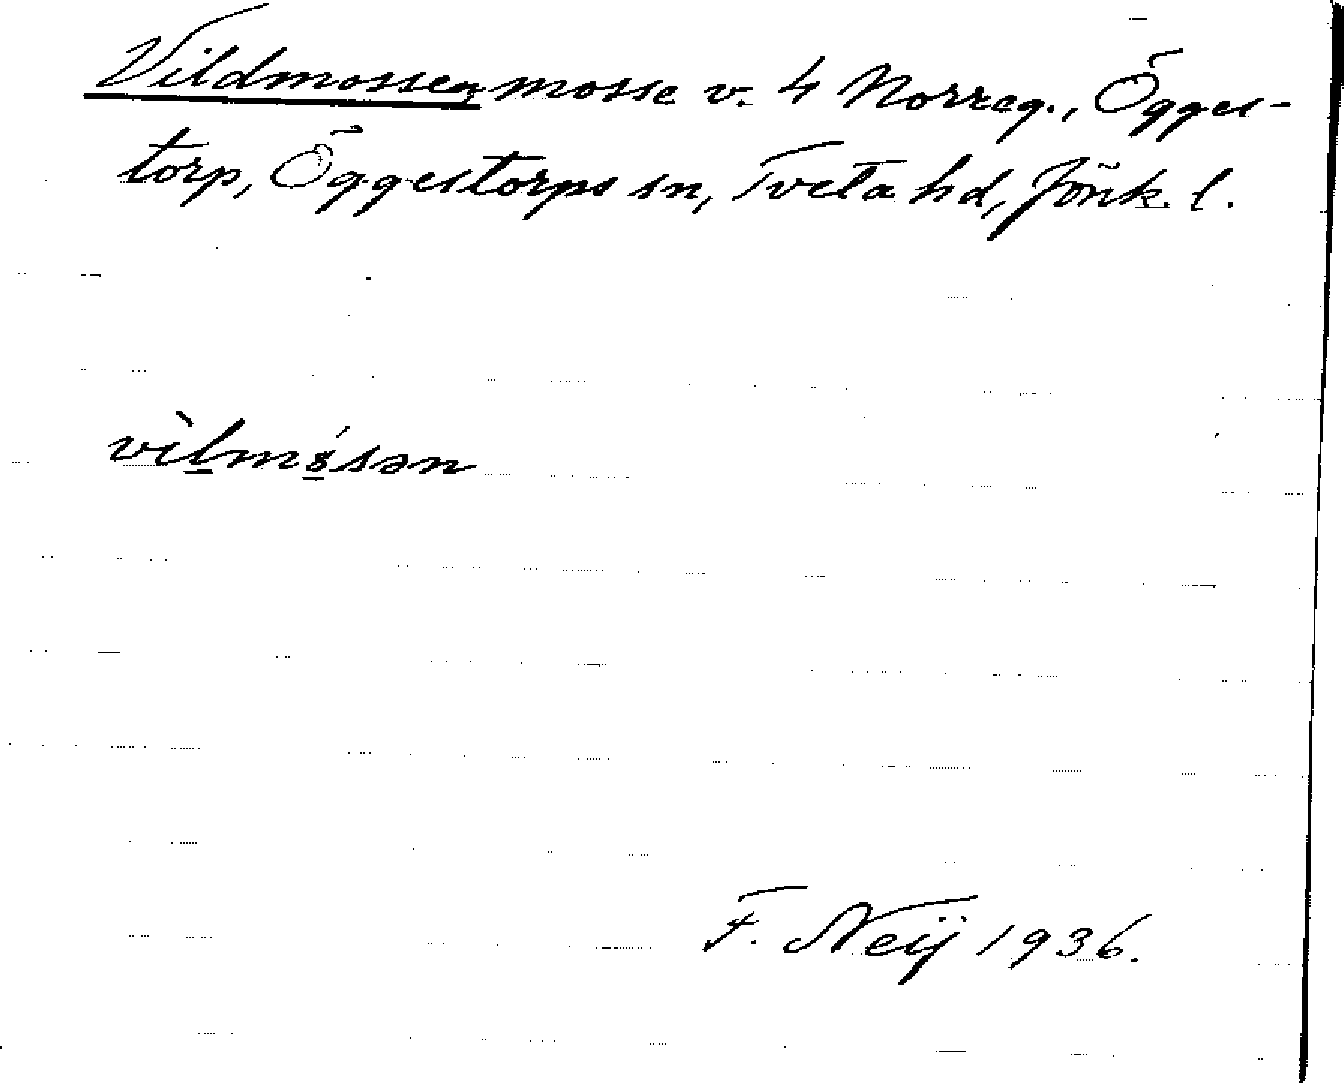 Vildmossen, mosse v. 4 Norreg., Ögges-
torp, Öggestorps sn, Tveta hd, Jönk. l.
vìl̲mó̲sən
F. Neij 1936.